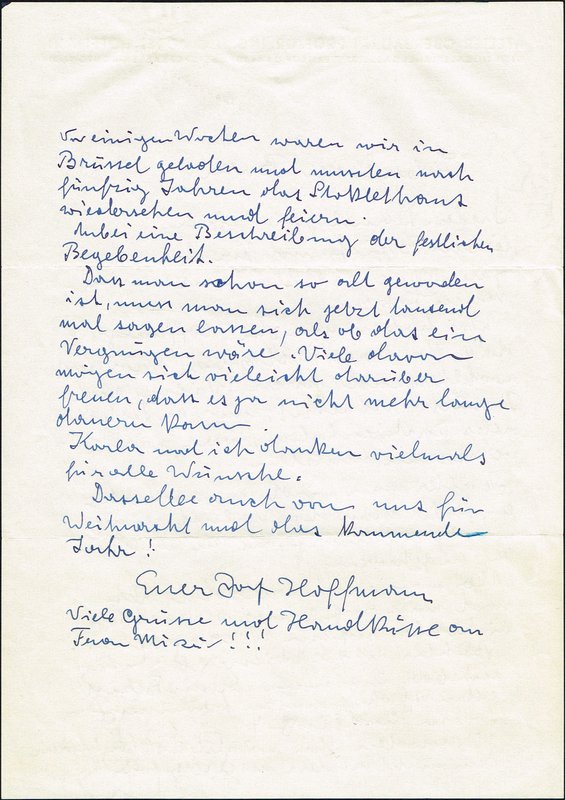 Vor einigen Wochen waren wir in
Brüssel geladen und mussten nach
fünfzig Jahren das Stoklethaus
wiedersehen und feiern.
Anbei eine Beschreibung der festlichen
Begebenheit.
Dass man schon so alt geworden
ist, muss man sich jetzt tausend
mal sagen lassen, als ob das ein
Vergnügen wäre. Viele davon
mögen sich vieleicht darüber
freuen, dass es ja nicht mehr lange
dauern kann.
Karla und ich danken vielmals
für alle Wünsche.
Dasselbe auch von uns für
Weihnacht und das kommende
Jahr!
Euer Josef Hoffmann
Viele Grüsse und Handküsse an
Frau Mizi!!!